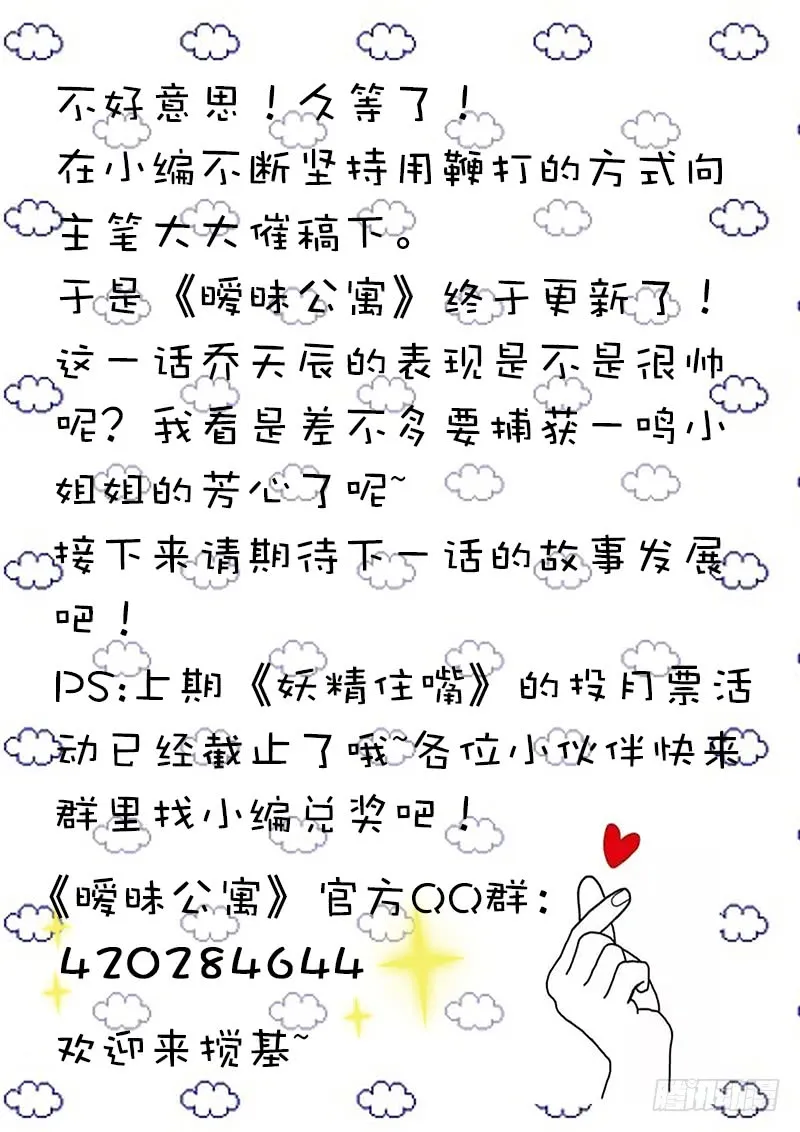 不好意思！久等了！
在小编不断坚持用鞭打的方式向
主笔大大催稿下。
于是《暧昧公寓》终于更新了！
这一话乔天辰的表现是不是很帅
呢？我看是差不多要捕获一鸣小
姐姐的芳心了呢~
接下来请期待下一话的故事发展
吧！
PS:上期《妖精住嘴》的投月票活
动已经截止了哦~各位小伙伴快来
群里找小编兑奖吧！
《暧昧公寓》官方QQ群：
420284644
欢迎来搅基~
腾讯动漫